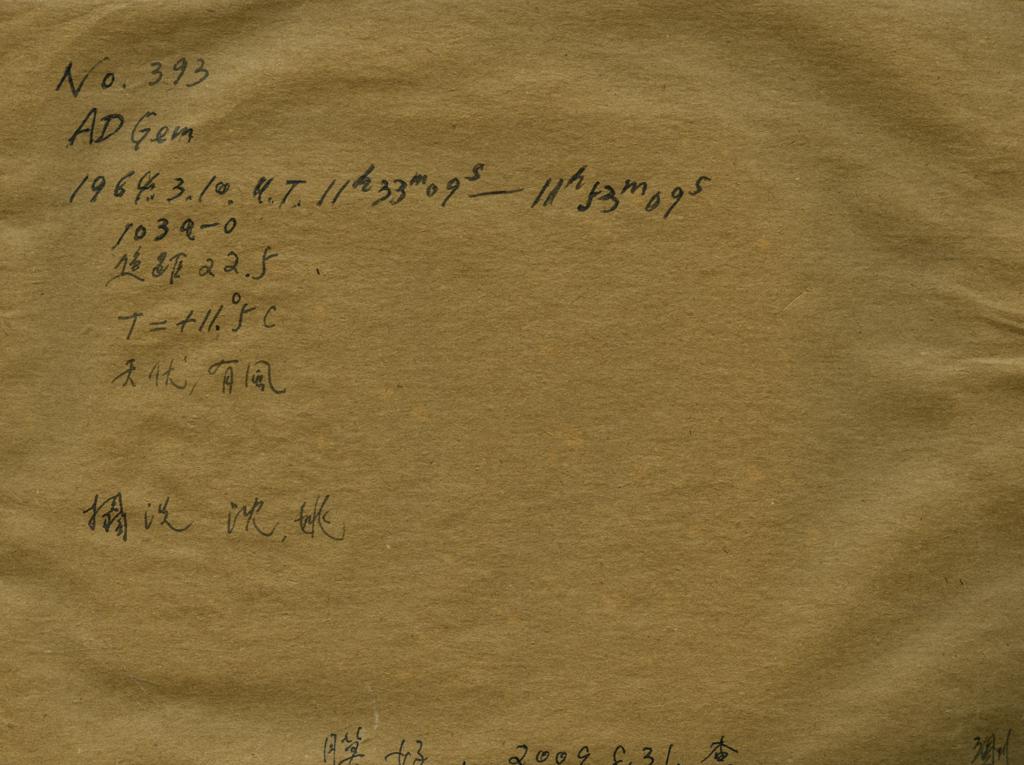 No. 393
AD Gem
1964. 3. 10. U.T. 11ʰ33ᵐ09ˢ — 11ʰ53ᵐ09ˢ
103a-0
追距 22.5
T=+11.°5 C
天优, 有風
攝洗 沈, 姚
膜 好. 2009. 8.31. 查
测